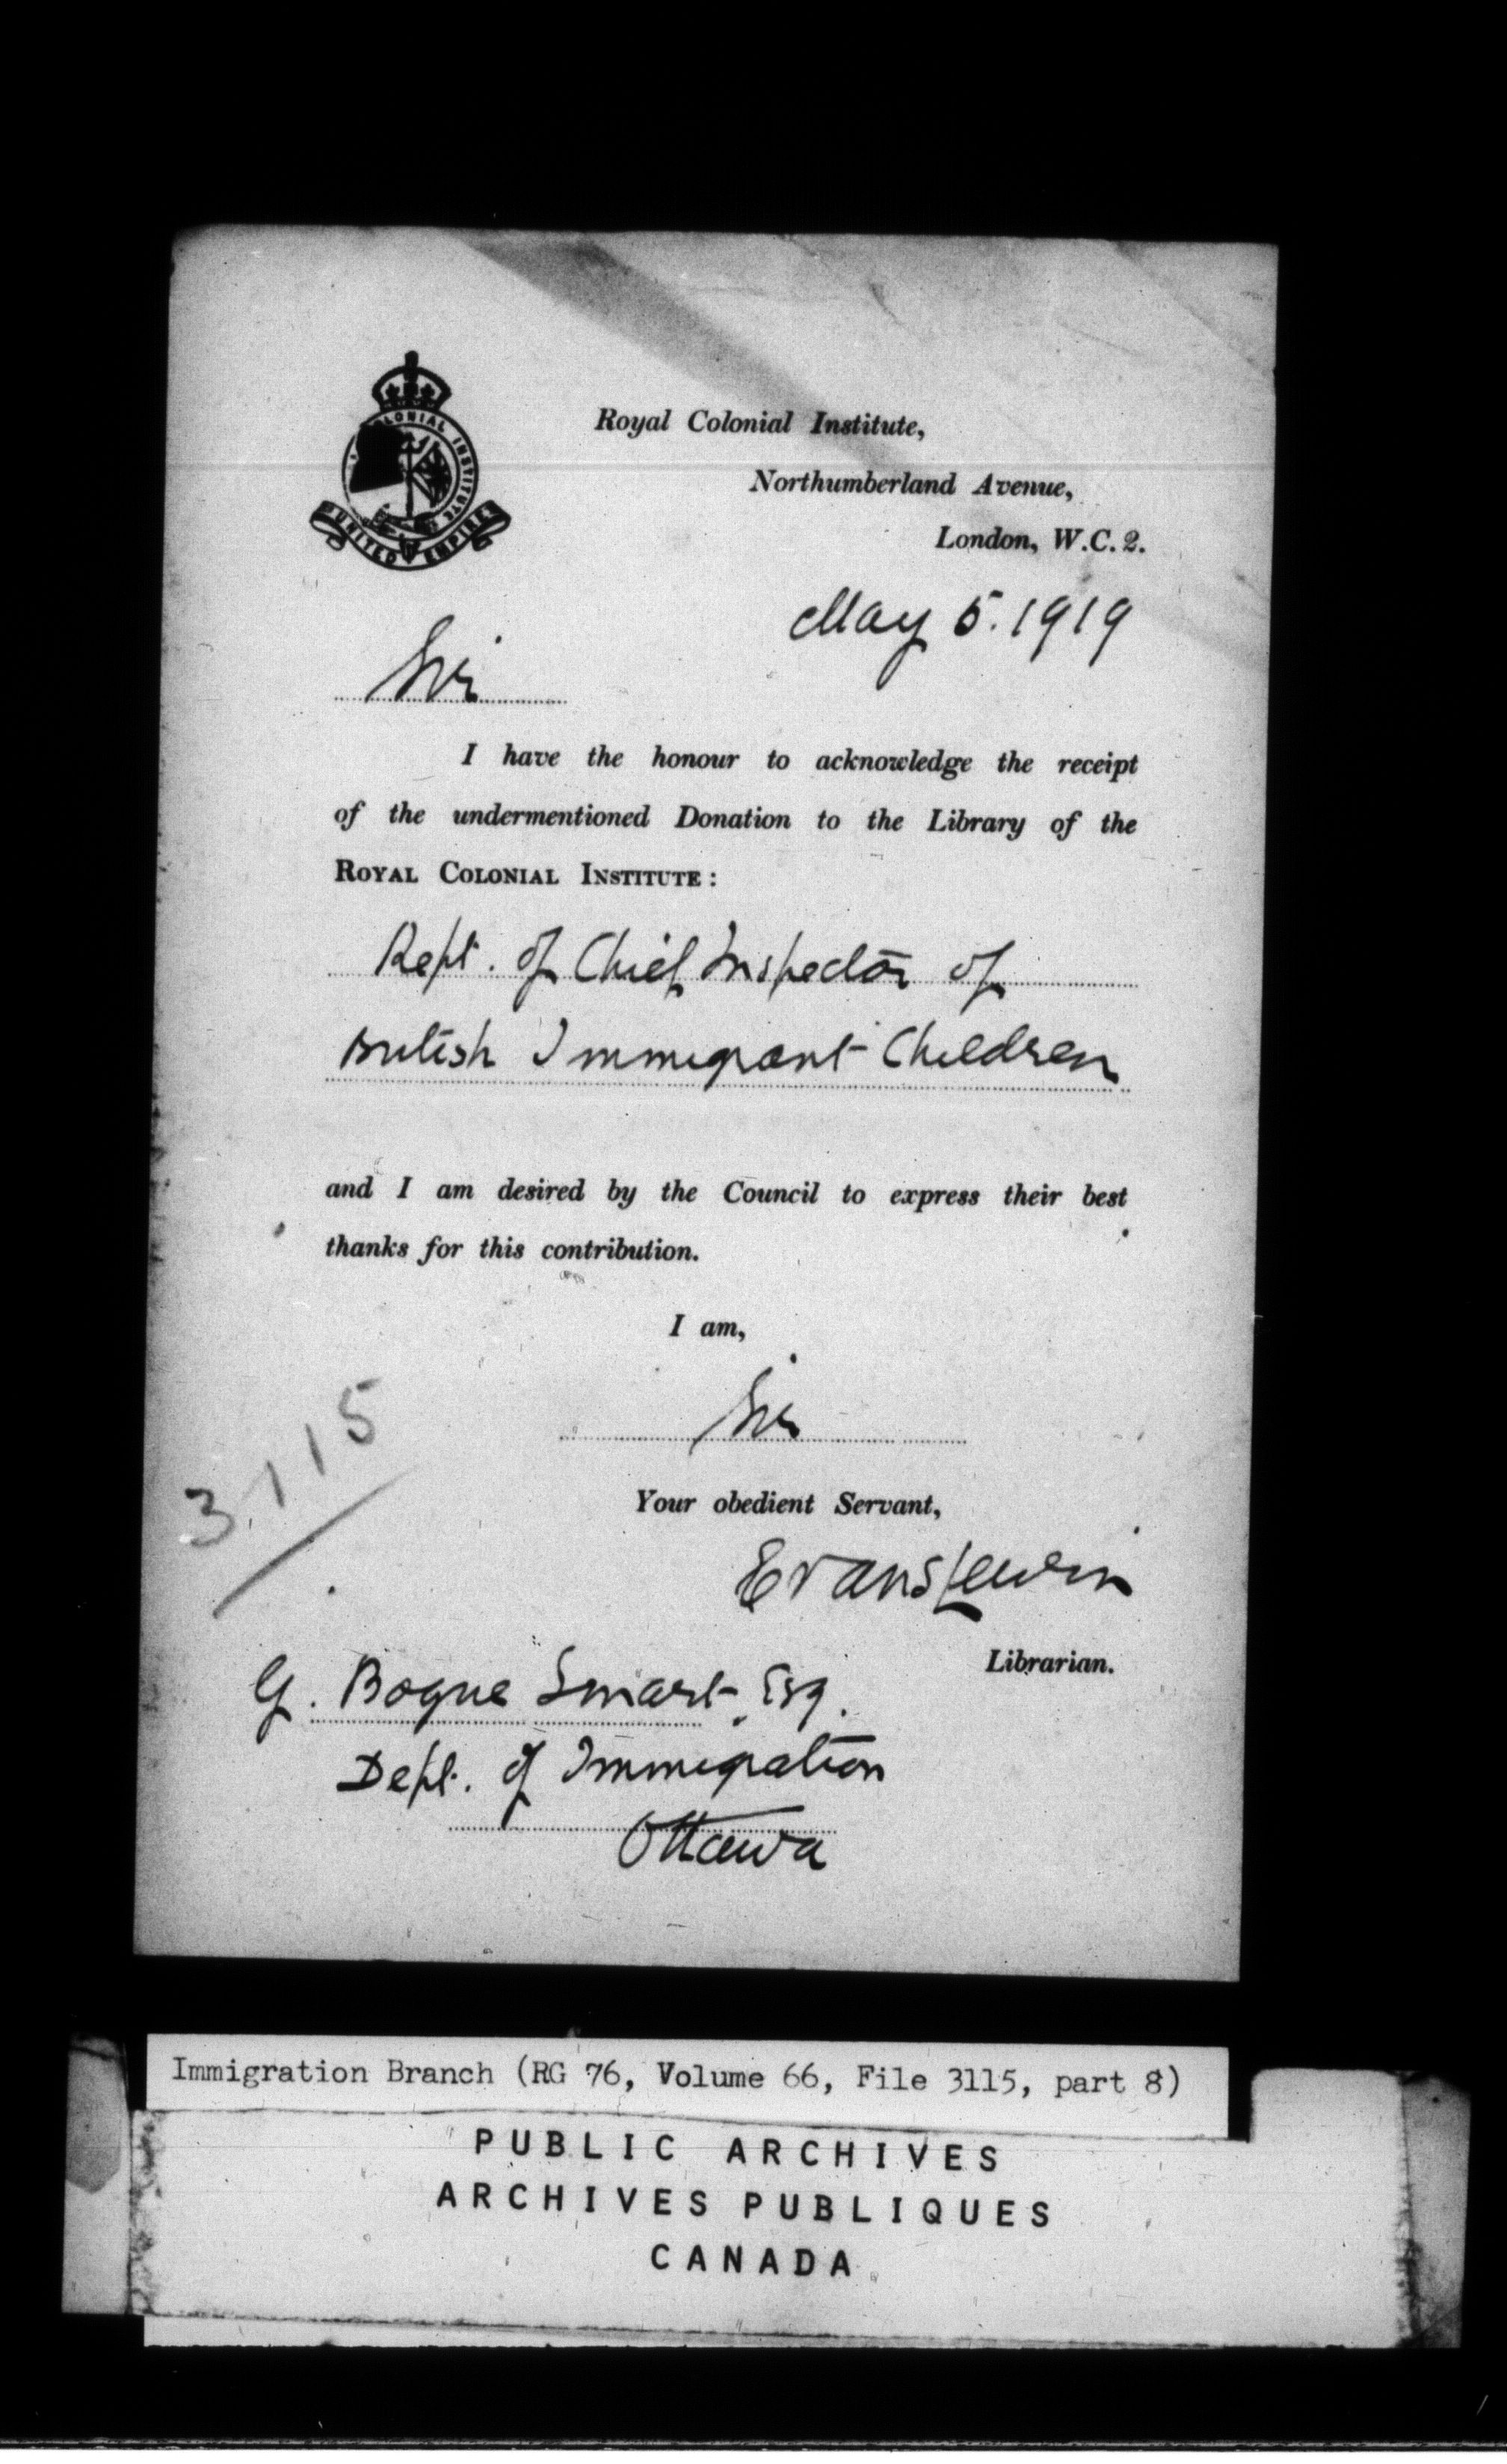 COLONIAL INSTITUTE
UNITED EMPIRE
Royal Colonial Institute,
Northumberland Avenue,
London, W.C.2.
May 5. 1919
Sir
I have the honour to acknowledge the receipt
of the undermentioned Donation to the Library of the
ROYAL COLONIAL INSTITUTE:
Rept. of Chief Inspector of
British Immigrant Children
and I am desired by the Council to express their best
thanks for this contribution.
I am,
Sir
3115
Your obedient Servant,
Evans Lewin
Librarian.
G. Bogue Smart, Esq.
Dept. of Immigration
Ottawa
Immigration Branch (RG 76, Volume 66, File 3115, part 8)
PUBLIC ARCHIVES
ARCHIVES PUBLIQUES
CANADA